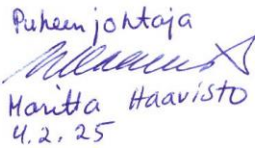 Puheenjohtaja
Maritta Haavisto
4.2.25